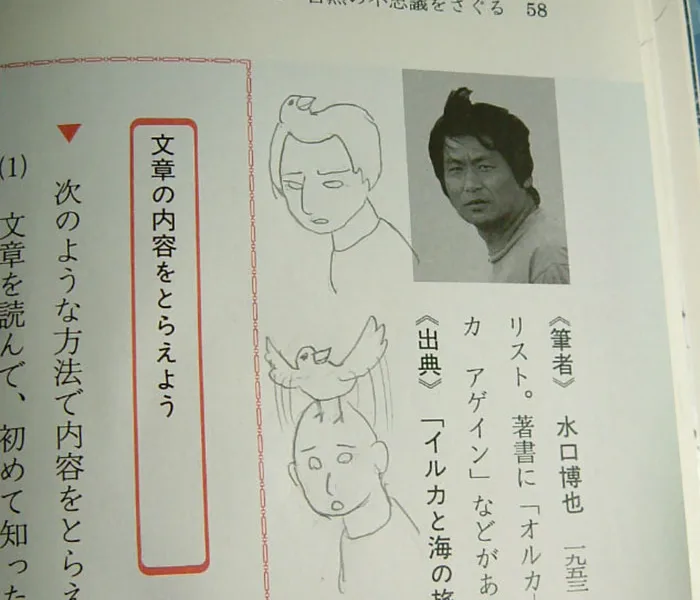 自然の不思議をさぐる 58
《筆者》 水口博也 一九五三
リスト。著書に「オルカ
カ アゲイン」などがあ
《出典》 「イルカと海の旅
文章の内容をとらえよう
▼ 次のような方法で内容をとらえ
(1) 文章を読んで、初めて知った